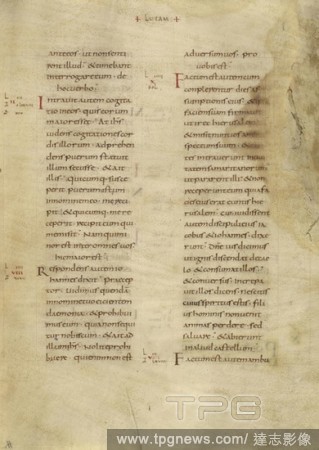 + LUCAM +
ante eos ut non senti
rent illud & timebant
interrogare eum de
hoc verbo
Intravit autem cogita
tio in eos quis eorum
maior esset At ihs
videns cogitationes cor
dis illorum adprehen
dens puerum statuit
illum secus se & ait
illis quicumque susce
perit puerum istum
in nomine meo me reci
pit & quicumque me re
ceperit recipit eum qui
me misit Nam qui mi
nor est inter omnes vos
hic maior est
Respondens autem io
hannes dixit praecep
tor vidimus quendam
in nomine tuo eicientem
daemonia & prohibui
mus eum quia non sequi
tur nobiscum & ait ad
illum ihs Nolite prohi
bere qui enim non est
adversum vos pro
vobis est
Factum est autem dum
complerentur dies as
sumptionis eius &
faciem suam firmavit
ut iret hierusalem
& misit nuntios ante con
spectum suum & eun
tes intraverunt in civi
tatem samaritanorum
ut pararent illi & non
receperunt eum quia fa
cies eius erat euntis hie
rusalem Cum vidissent
autem discipuli eius ia
cobus & iohannes dixe
runt Dne vis dicimus
ut ignis descendat de cae
lo & consumat illos
& conversus increpa
vit illos dicens nescitis
cuius spiritus estis filius
hominis non venit
animas perdere sed
salvare & abierunt
in aliud castellum
Factum est autem ambu
TPG
www.tpgnews.com / 達志影像